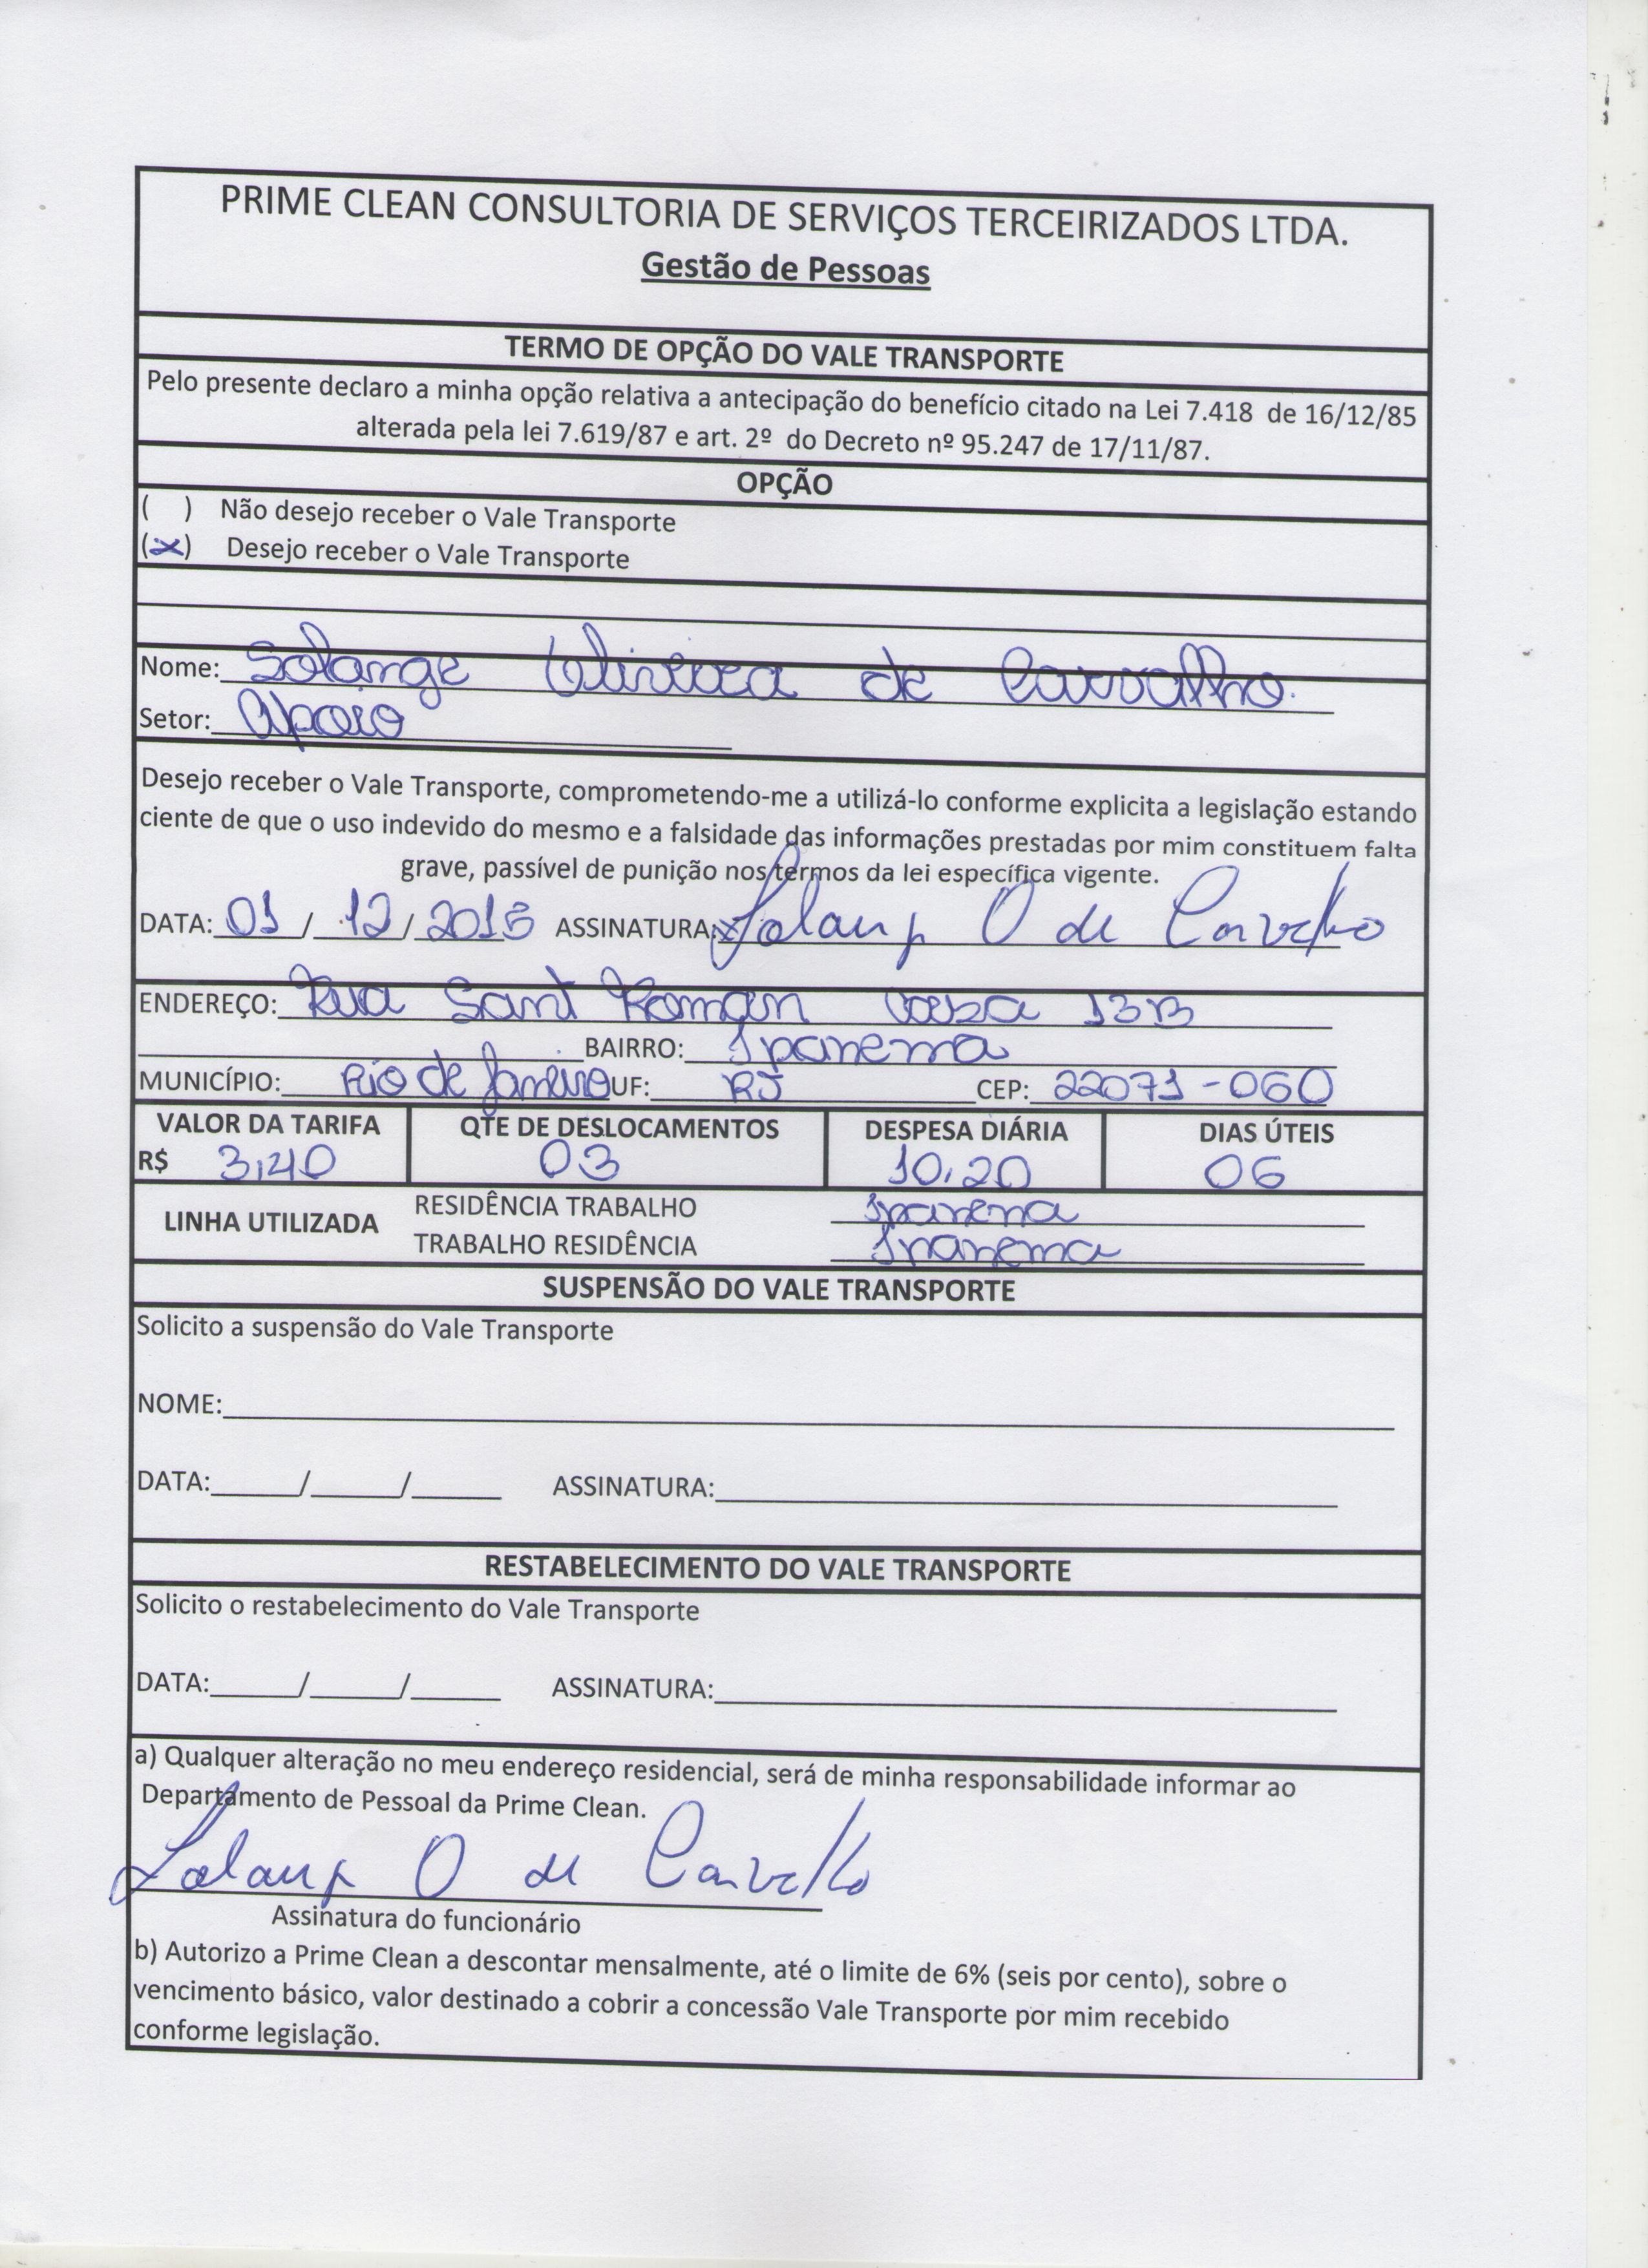 PRIME CLEAN CONSULTORIA DE SERVIÇOS TERCEIRIZADOS LTDA.
Gestão de Pessoas
TERMO DE OPÇÃO DO VALE TRANSPORTE
Pelo presente declaro a minha opção relativa a antecipação do benefício citado na Lei 7.418 de 16/12/85
alterada pela lei 7.619/87 e art. 2º do Decreto nº 95.247 de 17/11/87.
OPÇÃO
( ) Não desejo receber o Vale Transporte
(x) Desejo receber o Vale Transporte
Nome: Solange Oliveira de Carvalho
Setor: Apoio
Desejo receber o Vale Transporte, comprometendo-me a utilizá-lo conforme explicita a legislação estando
ciente de que o uso indevido do mesmo e a falsidade das informações prestadas por mim constituem falta
grave, passível de punição nos termos da lei específica vigente.
DATA: 01 / 12 / 2015 ASSINATURA: Solange O de Carvalho
ENDEREÇO: Rua Sant Roman Casa 13B
BAIRRO: Ipanema
MUNICÍPIO: Rio de Janeiro UF: RJ CEP: 22071-060
VALOR DA TARIFA QTE DE DESLOCAMENTOS DESPESA DIÁRIA DIAS ÚTEIS
R$ 3,40 03 10,20 06
LINHA UTILIZADA RESIDÊNCIA TRABALHO Ipanema
TRABALHO RESIDÊNCIA Ipanema
SUSPENSÃO DO VALE TRANSPORTE
Solicito a suspensão do Vale Transporte
NOME:
DATA: / / ASSINATURA:
RESTABELECIMENTO DO VALE TRANSPORTE
Solicito o restabelecimento do Vale Transporte
DATA: / / ASSINATURA:
a) Qualquer alteração no meu endereço residencial, será de minha responsabilidade informar ao
Departamento de Pessoal da Prime Clean.
Solange O de Carvalho
Assinatura do funcionário
b) Autorizo a Prime Clean a descontar mensalmente, até o limite de 6% (seis por cento), sobre o
vencimento básico, valor destinado a cobrir a concessão Vale Transporte por mim recebido
conforme legislação.